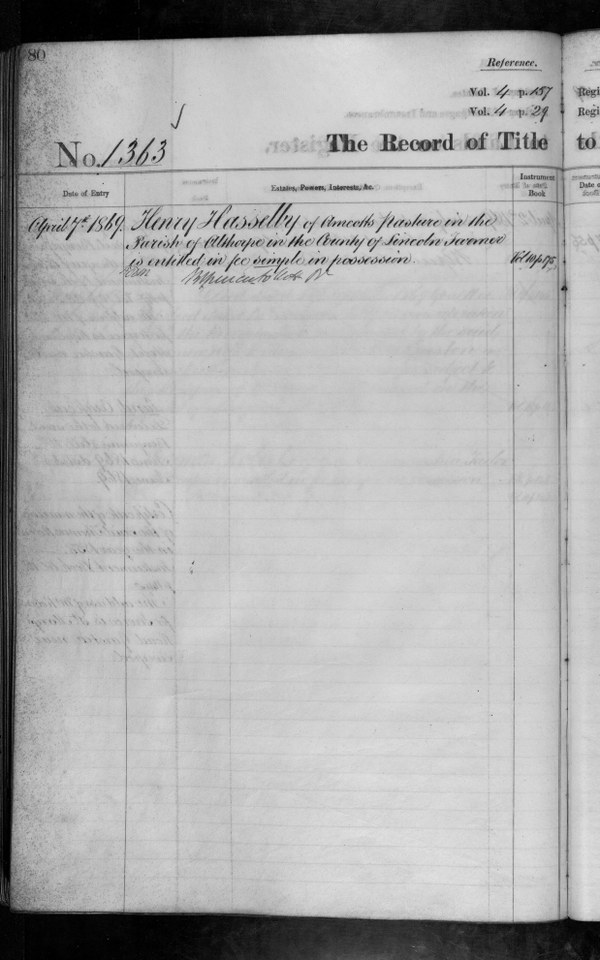 80
Reference.
Vol. 4 p. 157
Vol. 4 p. 29
No. 1363
The Record of Title
to
Regi
Regi
Date of Entry
Estates, Powers, Interests, &c.
Instrument
Book
Date o
April 7th 1869. Henry Hasselby of Amcotts pasture in the
Parish of Althorpe in the County of Lincoln Farmer
is entitled in fee simple in possession. Vol 10 p 175